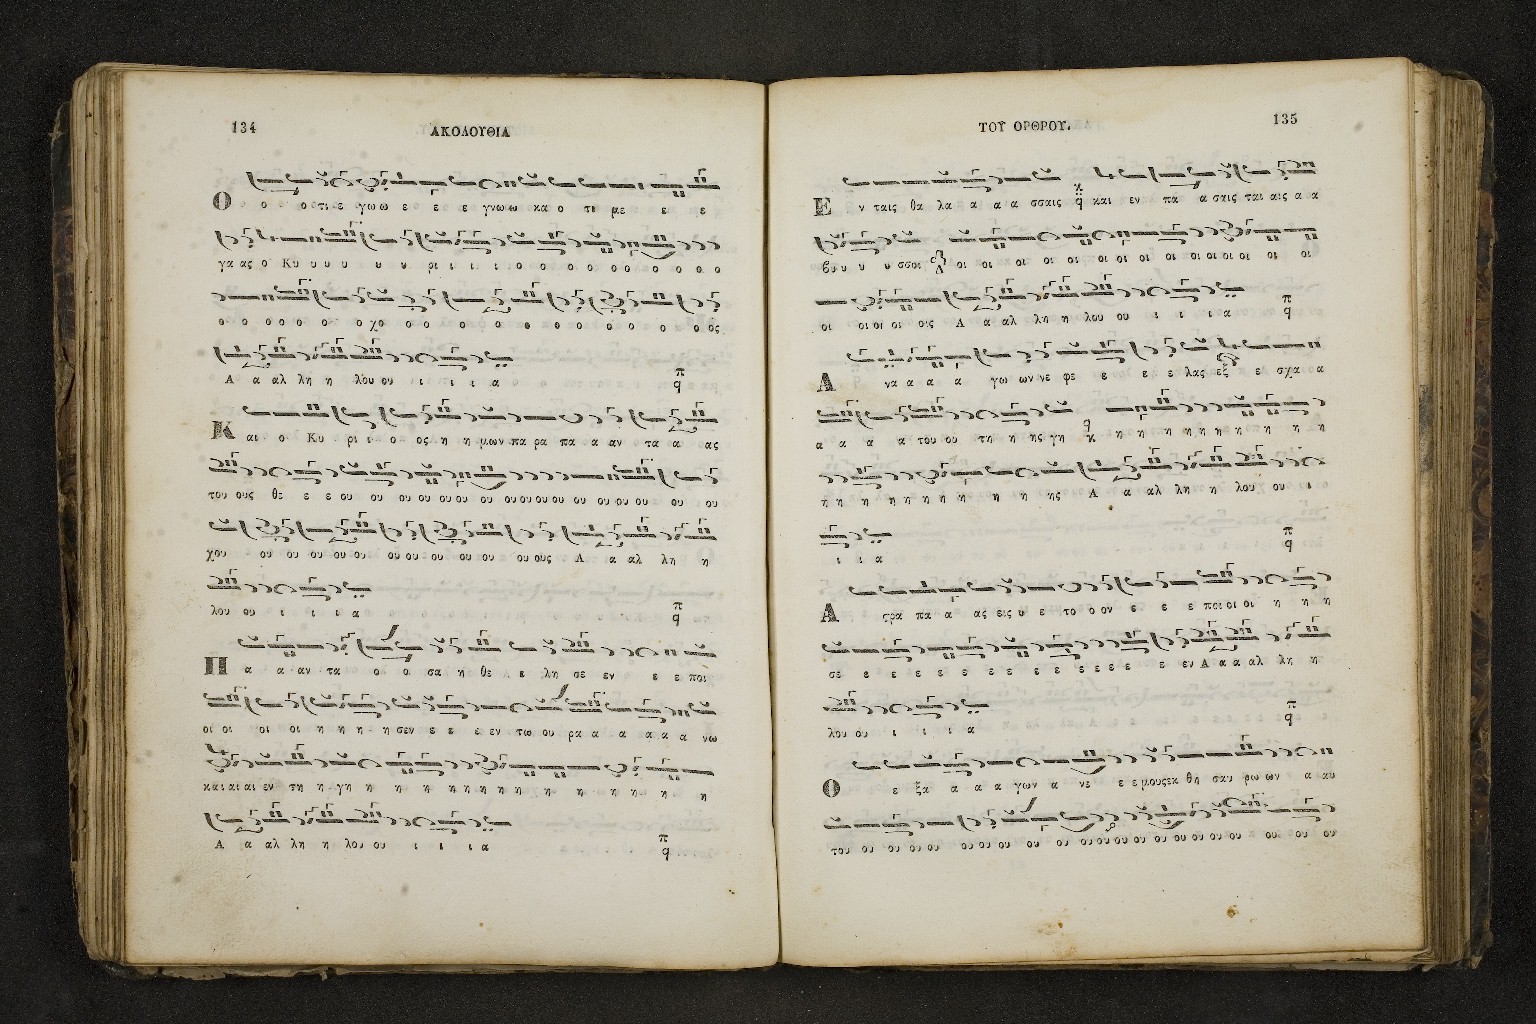 134
ΑΚΟΛΟΥΘΙΑ
Ο ο ο τι ε γω ω ε ε ε γνω ω κα ο τι με ε ε
γα ας ο Κυ υ υ υ υ υ ρι ι ι ι ο ο ο ο ο ο ο ο ο ο
ο ο ο ο ο ο ο χο ο ο ο ο ο ο ο ο ο ο ο ο ο ος
Α α αλ λη η λου ου ι ι ι α π q
Κ αι ο Κυ ρι ι ο ος η η μων πα ρα πα α αν τα α ας
του ους θε ε ε ου ου ου ου ου ου ου ου ου ου ου ου ου ου ου ου ου
χου ου ου ου ου ου ου ου ου ου ου ου ου ους Α α αλ λη η
λου ου ι ι ι α π q
Π α α αν τα ο ο σα η θε ε λη σε εν ε ε ποι
οι οι οι οι η η η η σεν ε ε ε εν τω ου ρα α α α α α νω
και αι αι εν τη η γη η η η η η η η η η η η η η η
Α α αλ λη η λου ου ι ι ι α π q
ΤΟΥ ΟΡΘΡΟΥ.
135
Ε ν ταις θα λα α α α σσαις q και εν πα α σαις ται αις α α
βυ υ υ υ σσοι οι οι οι οι οι οι οι οι οι οι οι οι οι οι οι
οι οι οι οι οι οις Α α αλ λη η λου ου ι ι ι α π q
Α να α α α γω ων νε φε ε ε ε λας εξ ε σχα α
α α α α του ου τη η ης γη q η η η η η η η η η η
η η η η η η η η η η η ης Α α αλ λη η λου ου ι
ι ι α π q
Α τρα πα α ας εις υ ε το ο ον ε ε ε ποι οι οι η η η
σε ε ε ε ε ε ε ε ε ε ε ε ε ε ε εν Α α α αλ λη η
λου ου ι ι ι α π q
Ο ε ξα α α α γων α νε ε ε μους εκ θη σαυ ρω ων α αυ
του ου ου ου ου ου ου ου ου ου ου ου ου ου ου ου ου ου ου ου ου ου